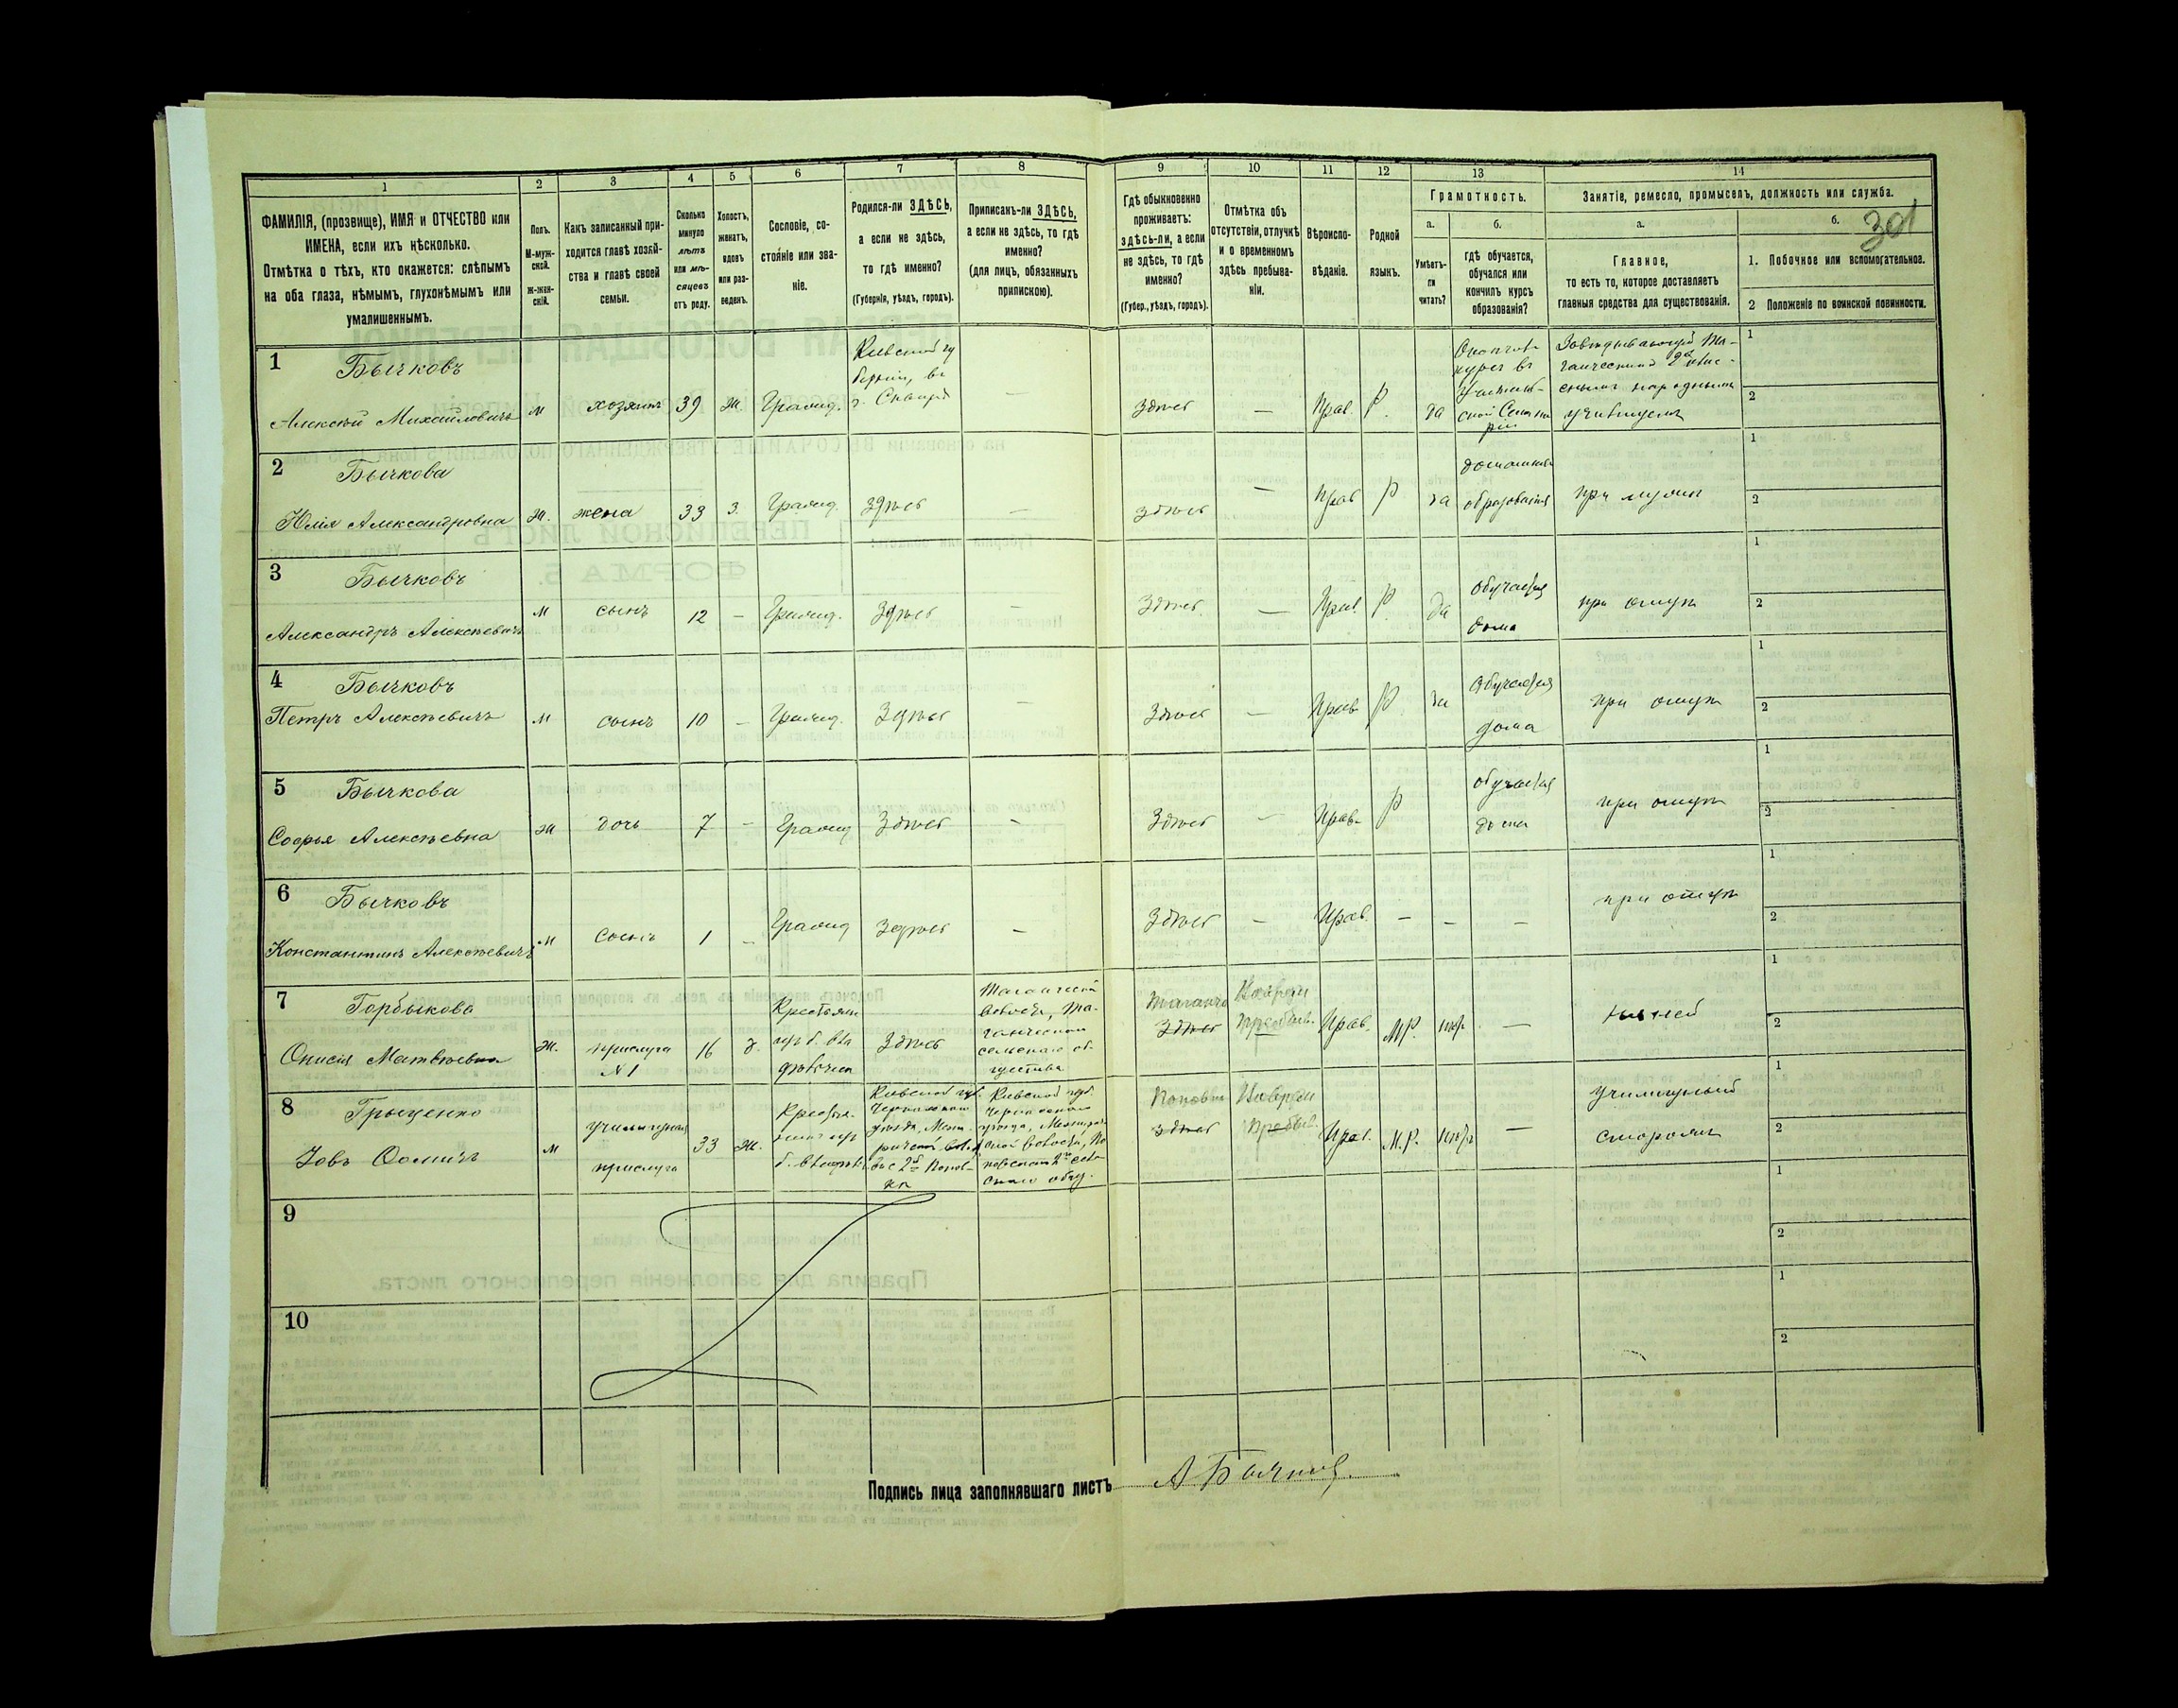 1 2 3 4 5 6 7 8 9 10 11 12 13 14
ФАМИЛІЯ, (прозвище), ИМЯ и ОТЧЕСТВО или
ИМЕНА, если ихъ нѣсколько.
Отмѣтка о тѣхъ, кто окажется: слѣпымъ
на оба глаза, нѣмымъ, глухонѣмымъ или
умалишеннымъ.
Полъ.
М-муж-
ской.
Ж-жен-
скій.
Какъ записанный при-
ходится главѣ хозяй-
ства и главѣ своей
семьи.
Сколько
минуло
лѣтъ
или мѣ-
сяцевъ
отъ роду.
Холостъ,
женатъ,
вдовъ
или раз-
веденъ.
Сословіе, со-
стояніе или зва-
ніе.
Родился-ли ЗДѢСЬ,
а если не здѣсь,
то гдѣ именно?
(Губернія, уѣздъ, городъ).
Приписанъ-ли ЗДѢСЬ,
а если не здѣсь, то гдѣ
именно?
(для лицъ, обязанныхъ
припискою).
Гдѣ обыкновенно
проживаетъ:
здѣсь-ли, а если
не здѣсь, то гдѣ
именно?
(Губер., уѣздъ, городъ).
Отмѣтка объ
отсутствіи, отлучкѣ
и о временномъ
здѣсь пребыва-
ніи.
Вѣроиспо-
вѣданіе.
Родной
языкъ.
Грамотность.
а.
Умѣетъ-
ли
читать?
б.
гдѣ обучается,
обучался или
кончилъ курсъ
образованія?
Занятіе, ремесло, промыселъ, должность или служба.
а.
Главное,
то есть то, которое доставляетъ
главныя средства для существованія.
б.
301
1. Побочное или вспомогательное.
2 Положеніе по воинской повинности.
1
Бычковъ
Алексѣй Михайловичъ
м
хозяинъ
39
ж.
Гражд.
Кіевской гу
берніи, въ
г. Сквирѣ
—
здѣсь
—
Прав.
Р.
да
курсъ въ
ской Семина
ріи
Завѣдывающій Та-
народнымъ
1
2
2
Бычкова
Юлія Александровна
ж.
жена
33
з.
Гражд.
здѣсь
—
здѣсь
—
Прав
Р
да
домашняго
образованія
при мужѣ
1
2
3
Бычковъ
Александръ Алексѣевичъ
м
сынъ
12
—
Гражд.
Здѣсь
—
Здѣсь
—
Прав.
Р.
да
обучается
дома
при отцѣ
1
2
4
Бычковъ
Петръ Алексѣевичъ
м
сынъ
10
—
Гражд.
Здѣсь
—
Здѣсь
—
Прав
Р.
да
обучается
дома
при отцѣ
1
2
5
Бычкова
Софья Алексѣевна
ж
дочь
7
—
Гражд
Здѣсь
—
Здѣсь
—
Прав.
Р
обучается
дома
при отцѣ
1
2
6
Бычковъ
Константинъ Алексѣевичъ
м
сынъ
1
—
Гражд
Здѣсь
—
Здѣсь
—
Прав.
—
—
—
при отцѣ
1
2
7
Горбыкова
Онисія Матвѣевна
ж.
прислуга
№1
16
д.
Крестьян
Здѣсь
волости, Та-
сельскаго об-
щества
здѣсь
Прав.
МР.
—
няней
1
2
8
Грыценко
Іовъ Ѳомичъ
м
училищная
прислуга
33
ж.
Кіевской губ.
Черкасскаго
уѣзда,
Кіевской губ.
Черкасскаго
уѣзда,
скаго общ.
здѣсь
Прав.
М.Р.
—
училищный
сторожъ
1
2
9
1
2
10
1
2
Подпись лица заполнявшаго листъ
А Бычковъ